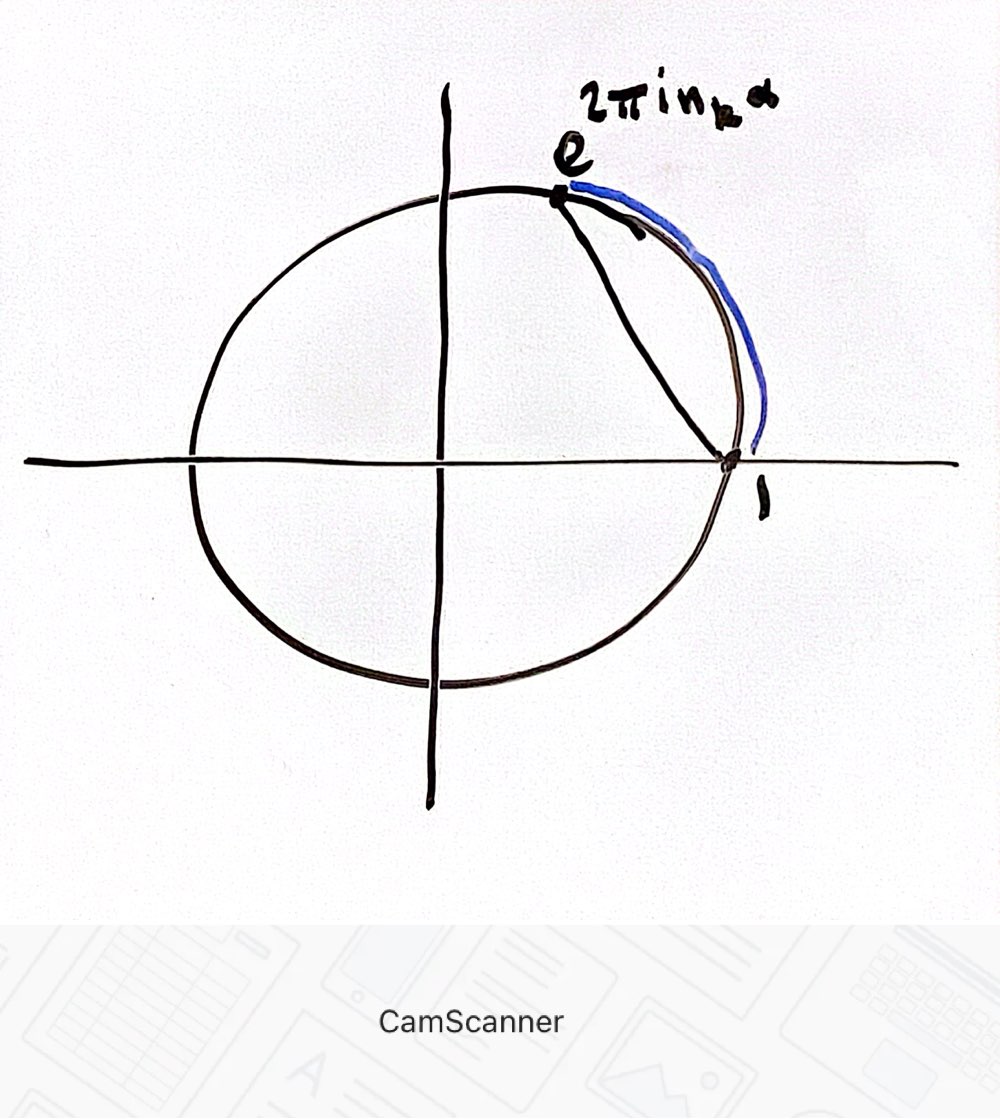 e^{2πi n_k α}
1
CamScanner